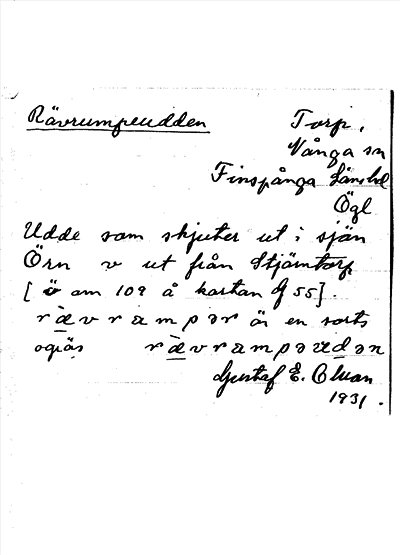 Rävrumpeudden
Torp,
Vånga sn
Finspånga länshd
Ögl
Udde som skjuter ut i sjön
Örn v ut från Stjärntorp
[ ö om 109 å kartan G 55].
rævrumpər är en sorts
ogräs rævrumpəudən
Gustaf E. Olsson
1931.